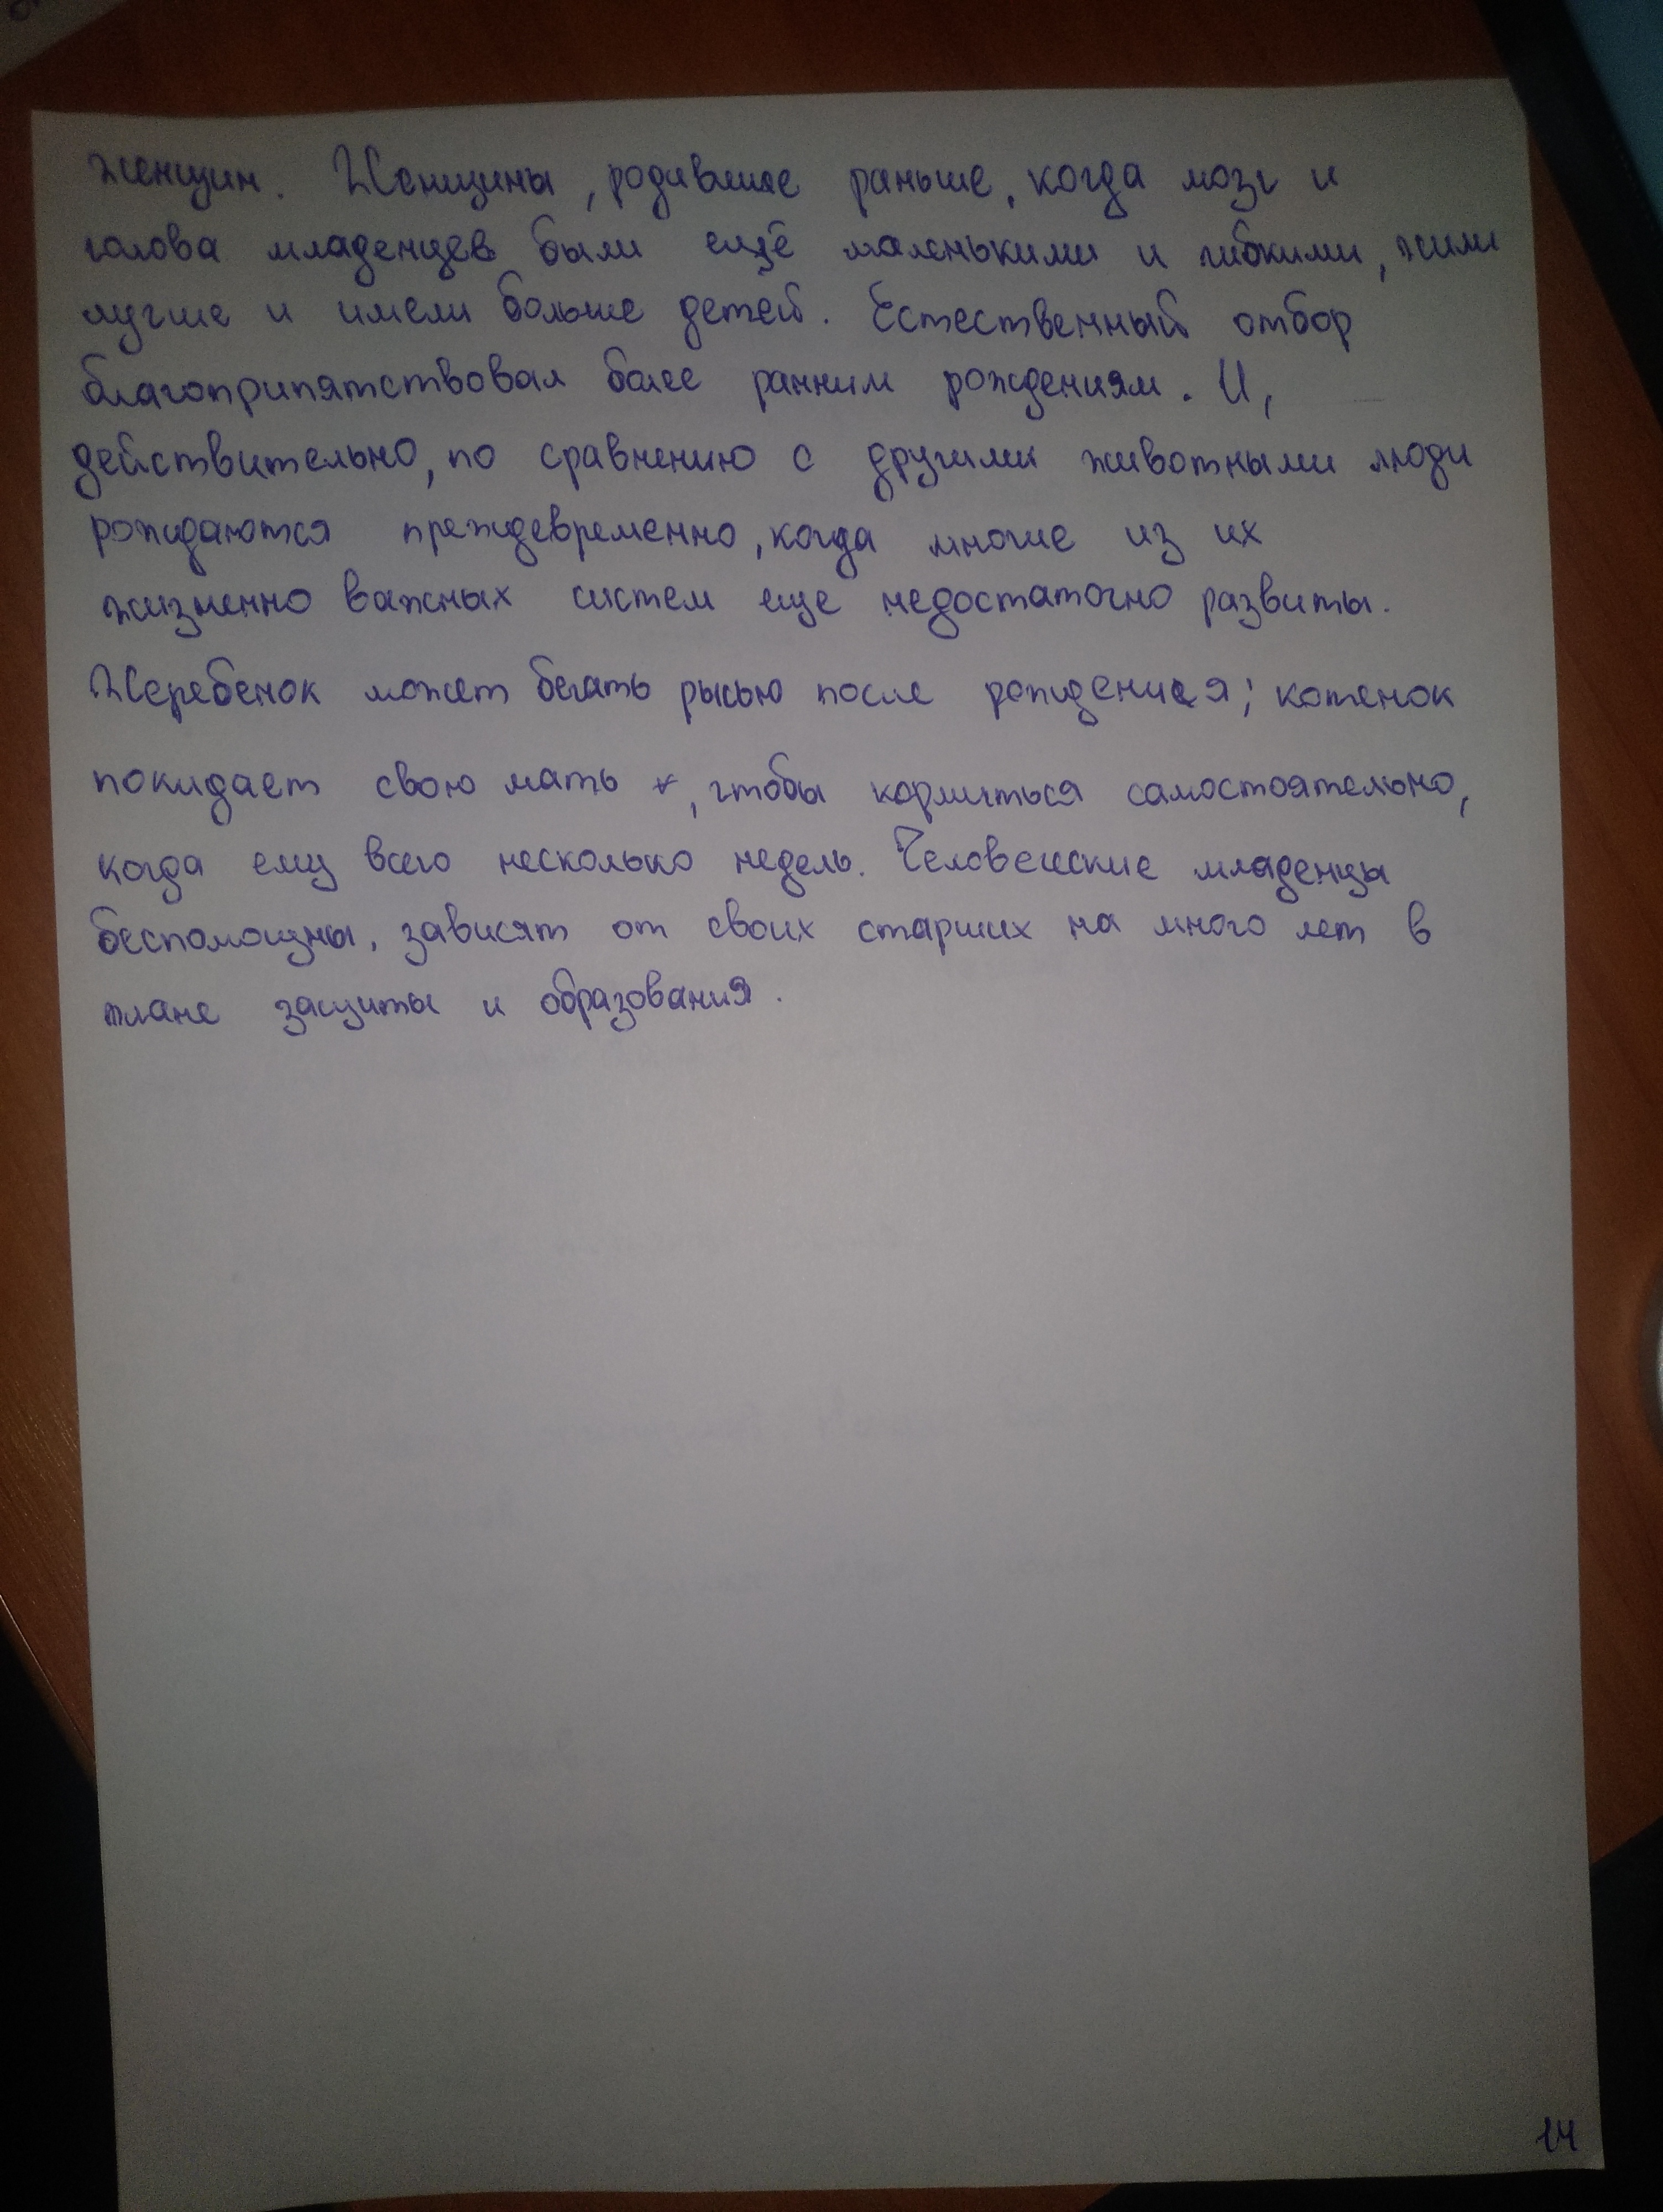 женщин. Женщины, родившие раньше, когда мозг и
голова младенцев были ещё маленькими и гибкими, жили
лучше и имели больше детей. Естественный отбор
благоприпятствовал более ранним рождениям. И,
действительно, по сравнению с другими животными люди
рождаются преждевременно, когда многие из их
жизненно важных систем еще недостаточно развиты.
Жеребенок может бегать рысью после рождения; котенок
покидает свою мать, чтобы кормиться самостоятельно,
когда ему всего несколько недель. Человеческие младенцы
беспомощны, зависят от своих старших на много лет в
плане защиты и образования.
14